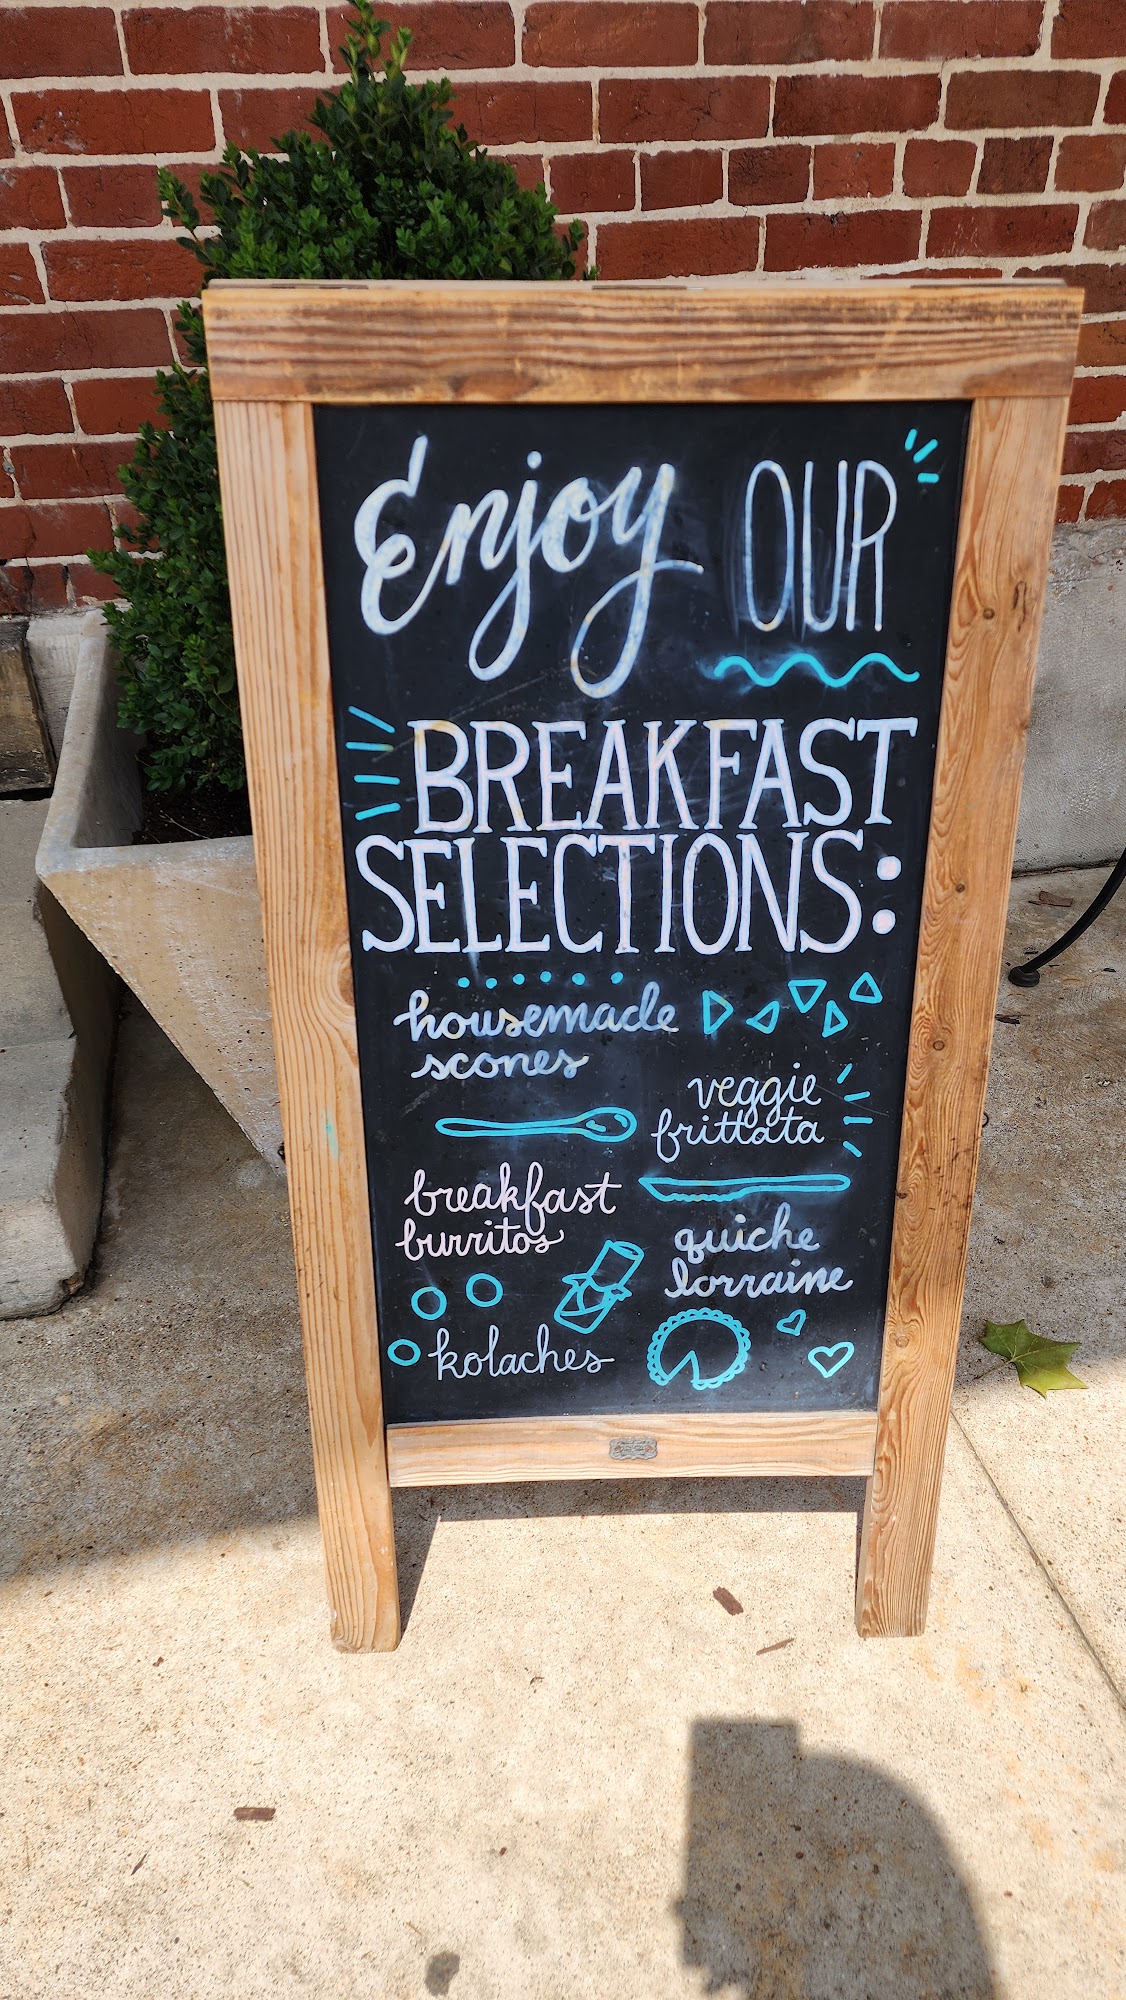 Enjoy OUR
BREAKFAST
SELECTIONS:
housemade
scones
veggie
frittata
breakfast
burritos
quiche
lorraine
kolaches